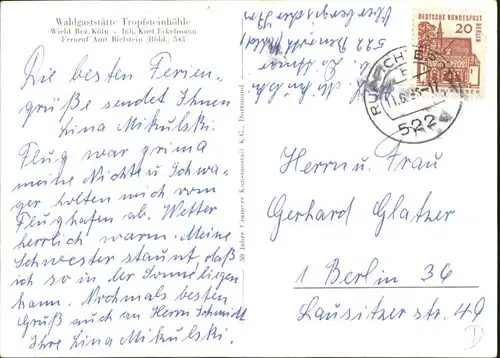 Waldgaststätte Tropfsteinhöhle
Wiehl Bez. Köln - Inh. Kurt Eckelmann
Fernruf Amt Bielstein (Rhld.) 543
Die besten Ferien-
grüße sendet Ihnen
Lina Mikulski.
Flug war prima
meine Nichte u Schwa-
ger holten mich vom
Flughafen ab. Wetter
herrlich warm. Meine
Schwester staunt, daß
ich so in der Sonne liegen
kann. Nochmals besten
Gruß auch an Herrn Schmidt
Ihre Lina Mikulski.
50 Jahre Cramers Kunstanstalt K.G., Dortmund
522
DEUTSCHE BUNDESPOST
BERLIN
20
522
Herrn u. Frau
Gerhard Glatzer
1 Berlin 36
Lausitzer str. 49